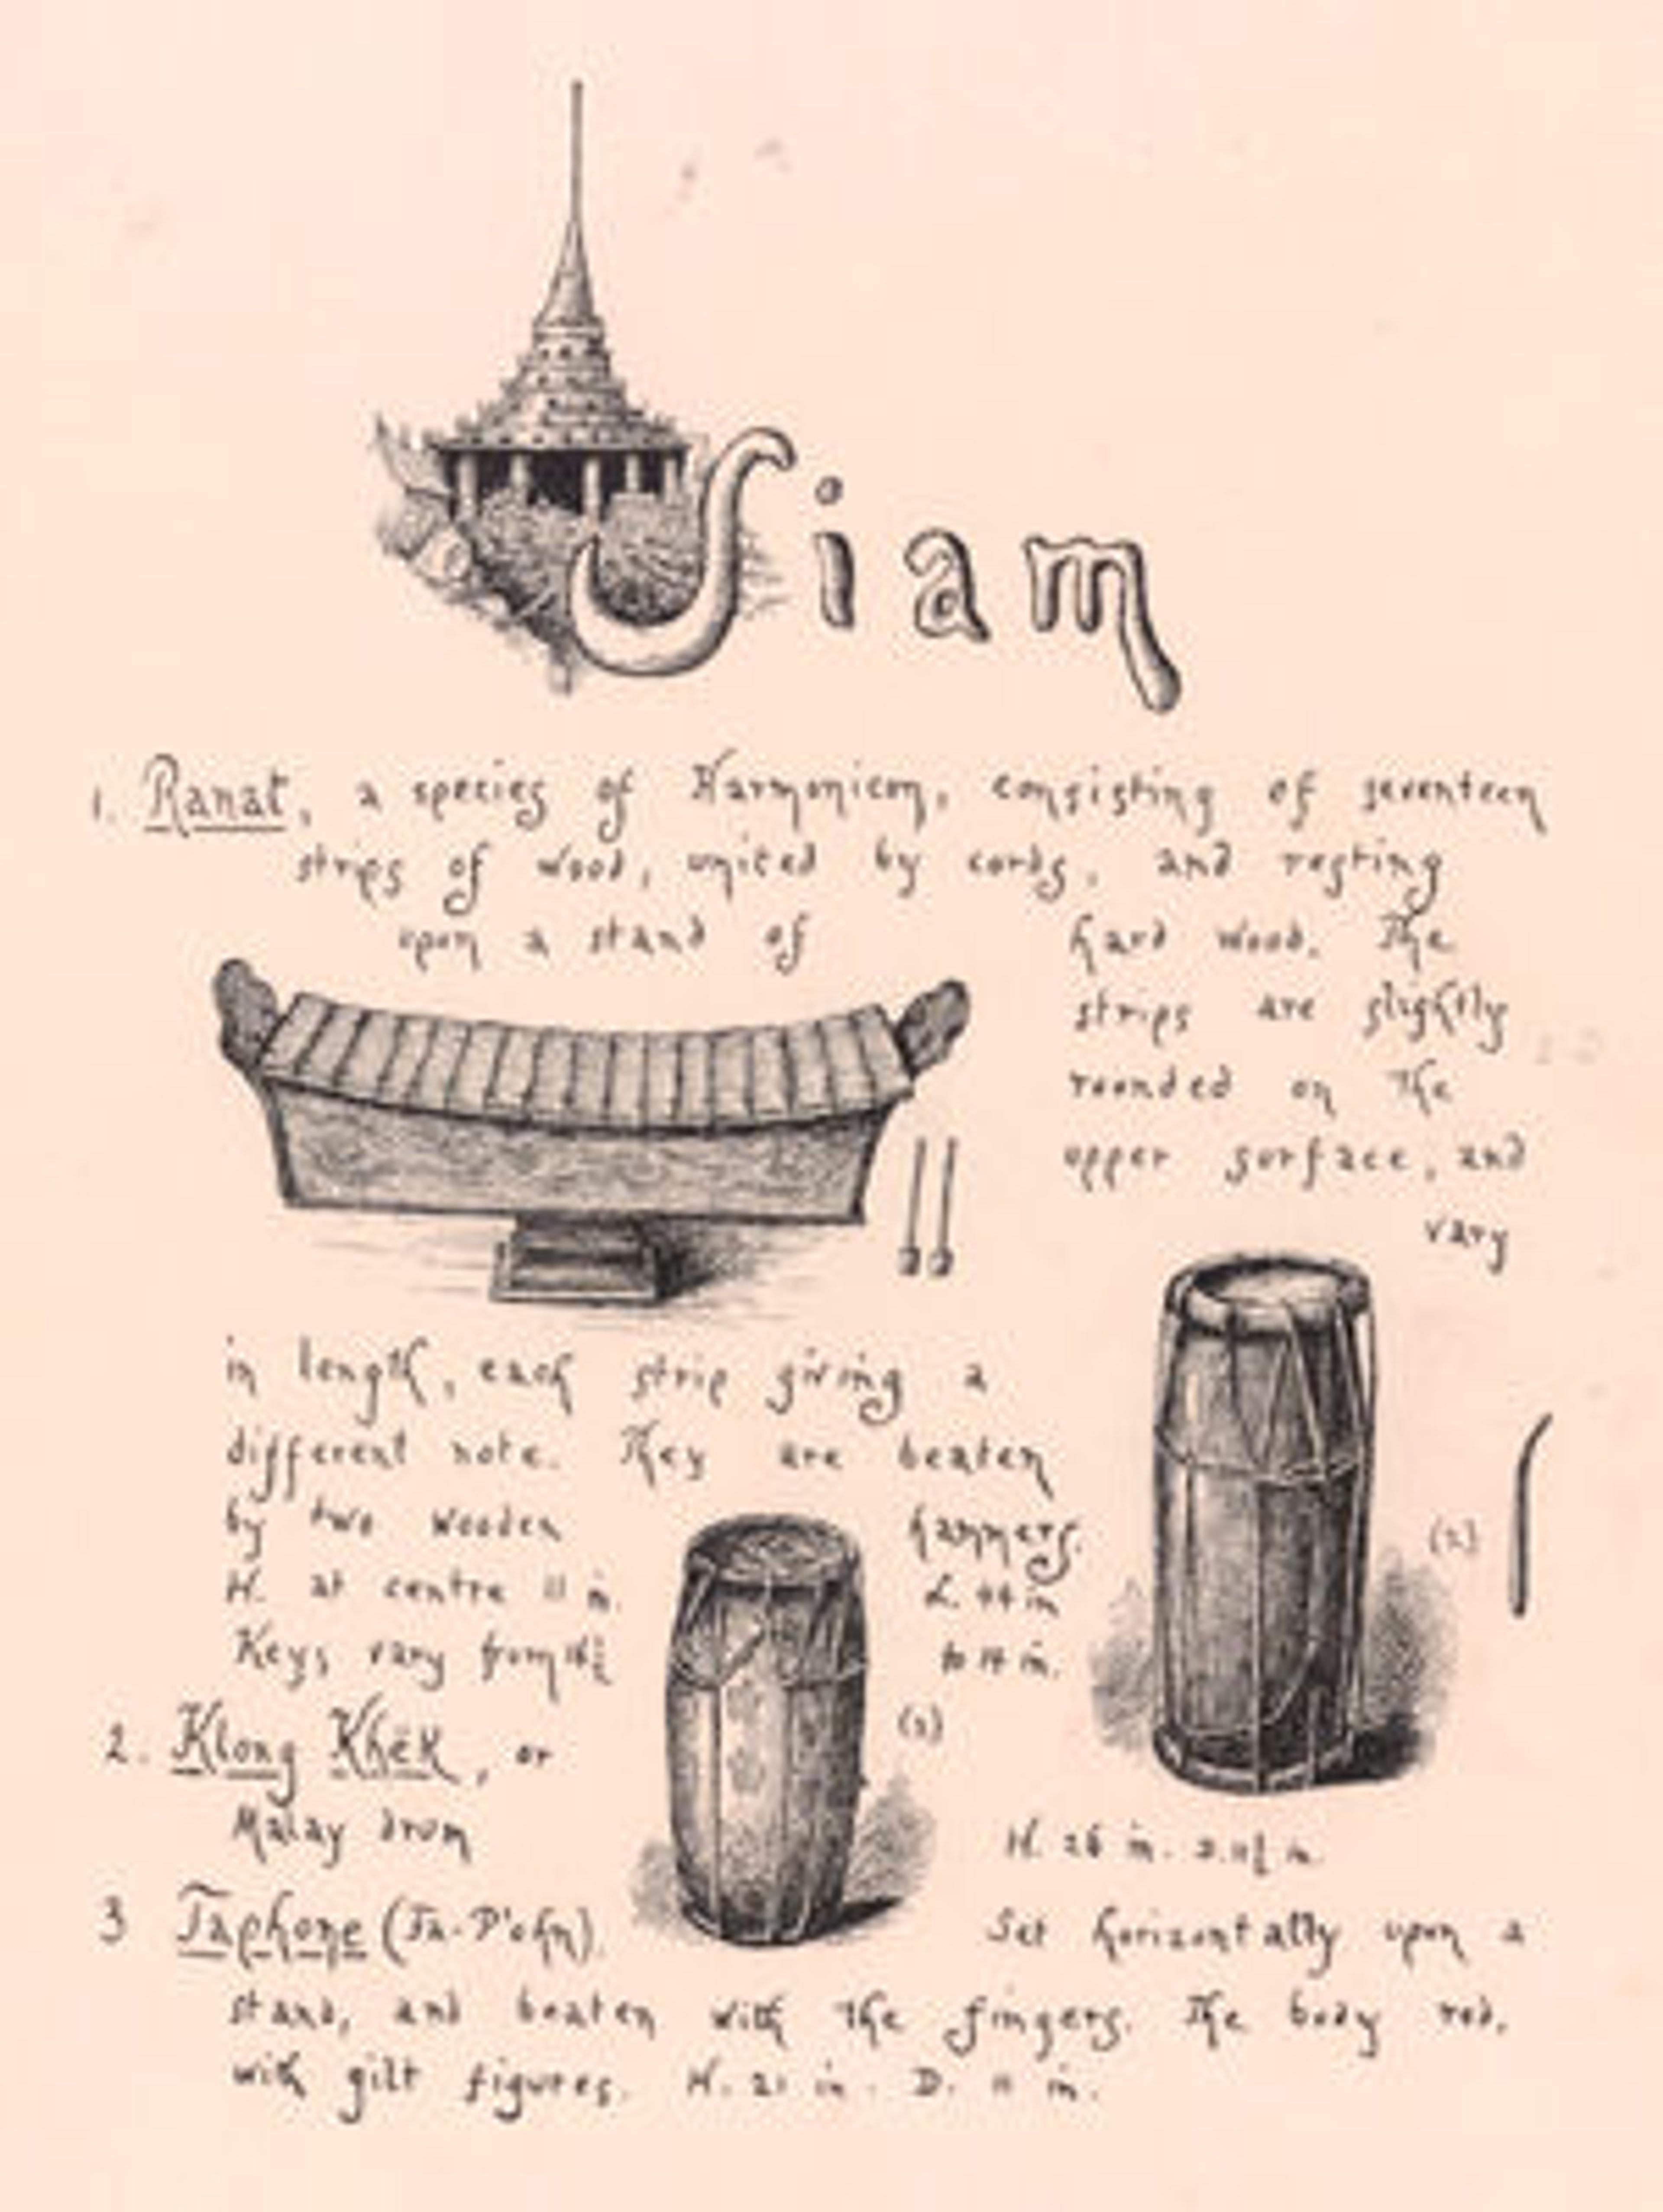 Siam
1. Ranat, a species of Harmonicon, consisting of seventeen
strips of wood, united by cords, and resting
upon a stand of hard wood. The
strips are slightly
rounded on the
upper surface, and
vary
in length, each strip giving a
different note. They are beaten
by two wooden hammers.
H. at centre 11 in. L. 44 in
Keys vary from to 14 in.
(2)
2. Klong Khëk, or
(3)
Malay drum
H. 26 in. D. 11½ in.
3 Taphone (Ta-P'ohn). Set horizontally upon a
stand, and beaten with the fingers. The body red,
with gilt figures. H. 21 in. D. 11 in.